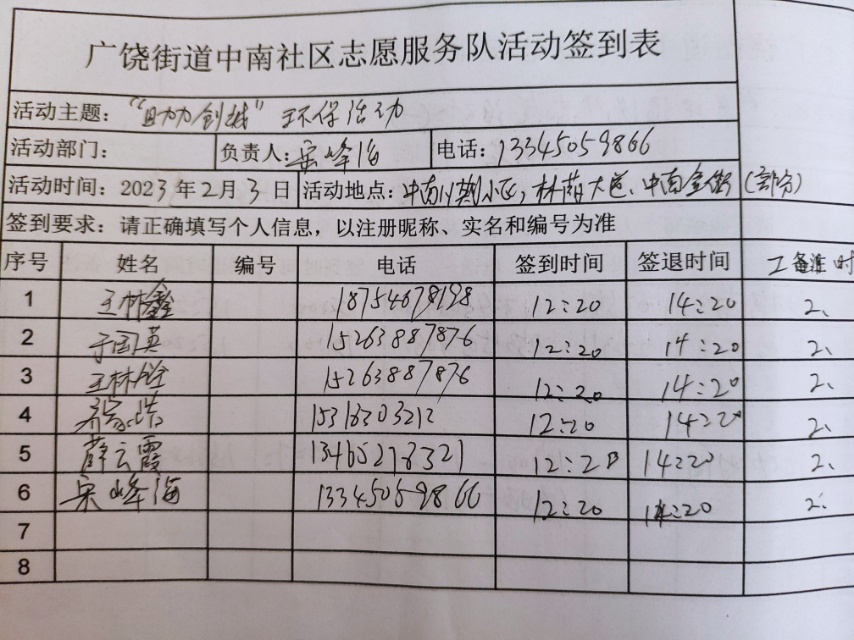 广饶街道中南社区志愿服务队活动签到表
活动主题:“助力创城” 环保活动
活动部门: 负责人:宋峰海 电话:13345059866
活动时间:2023年2月3日 活动地点:中南小区,林荫大道、中南金街
签到要求:请正确填写个人信息,以注册昵称、实名和编号为准
序号 姓名 编号 电话 签到时间 签退时间 工备准时
1 王林鑫 18754678198 12:20 14:20 2、
2 于国英 15263887876 12:20 14:20 2、
3 王林铨 15263887876 12:20 14:20 2、
4 12:20 14:20 2、
5 薛云霞 12:20 14:20 2、
6 宋峰海 13345059866 12:20 14:20 2、
7
8